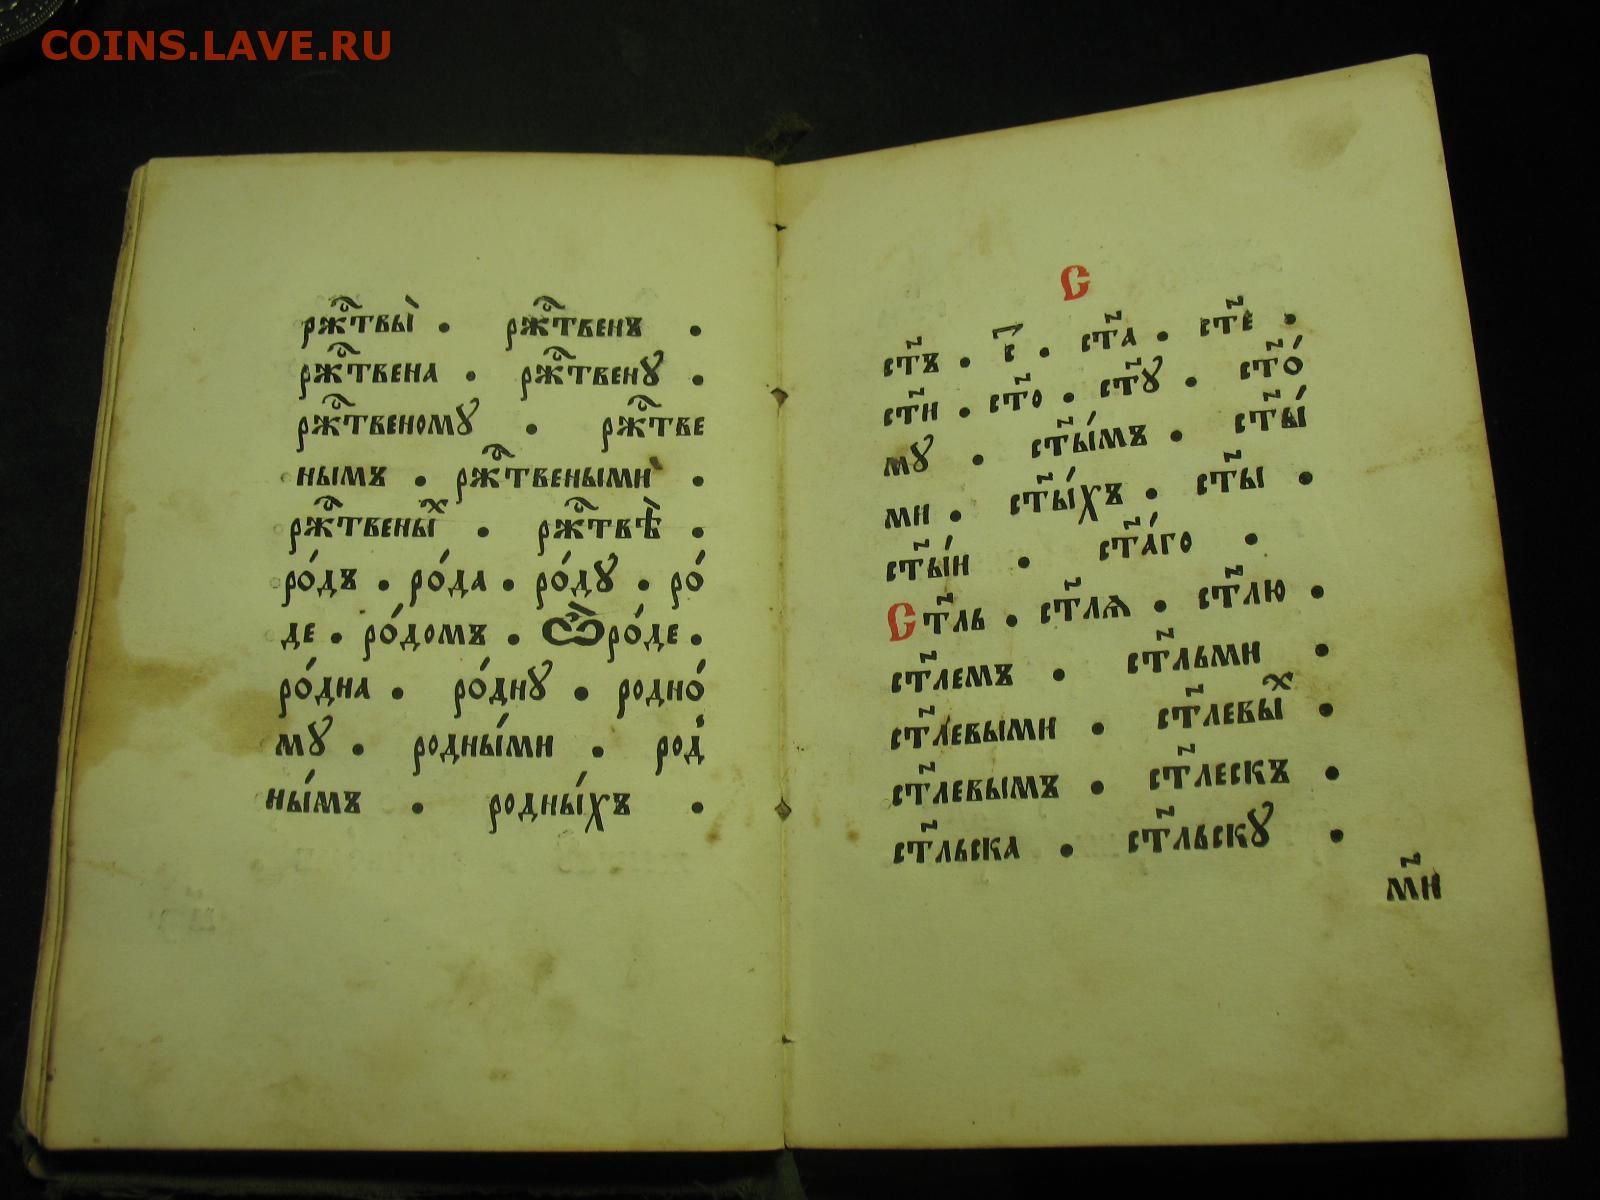 COINS.LAVE.RU
рж҇ⷭ҇твы̀ . рж҇ⷭ҇твенъ .
рж҇ⷭ҇твена . рж҇ⷭ҇твенꙋ .
рж҇ⷭ҇твеномꙋ . рж҇ⷭ҇тве
нымъ . рж҇ⷭ҇твеными .
рж҇ⷭ҇твены́ⷯ . рж҇ⷭ҇твѣ̀ .
ро́дъ . ро́да . ро́дꙋ . ро́
де . ро́домъ . Ѽро́де .
ро́дна . ро́днꙋ . родно́
мꙋ . родны́ми . род
ны́мъ . родны́хъ .
С
ст҃ъ . с҃ . ст҃а . ст҃е .
ст҃и . ст҃о . ст҃ꙋ . ст҃о́
мꙋ . ст҃ы́мъ . ст҃ы́
ми . ст҃ы́хъ . ст҃ы .
ст҃ы́и . ст҃а́го .
Ст҃ль . ст҃лѧ . ст҃лю .
ст҃лемъ . ст҃льми .
ст҃левыми . ст҃левыⷯ .
ст҃левымъ . ст҃лескъ .
ст҃льска . ст҃льскꙋ .
м҃и